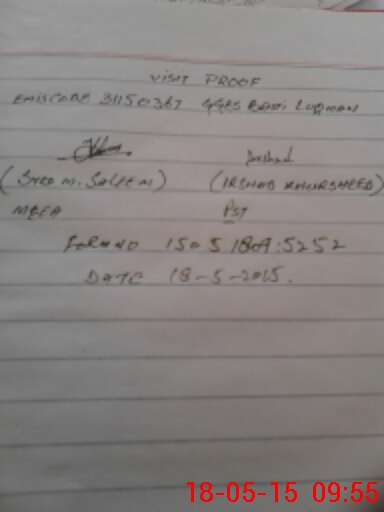 VISIT PROOF
EMISCODE 31150367 GGES BASTI LUQMAN
Irshad
(SYED M. SALEEM) (IRSHAD KHURSHEED)
MEEA PST
FORM NO 1505180A.5252
DATE 18-5-2015.
18-05-15 09:55